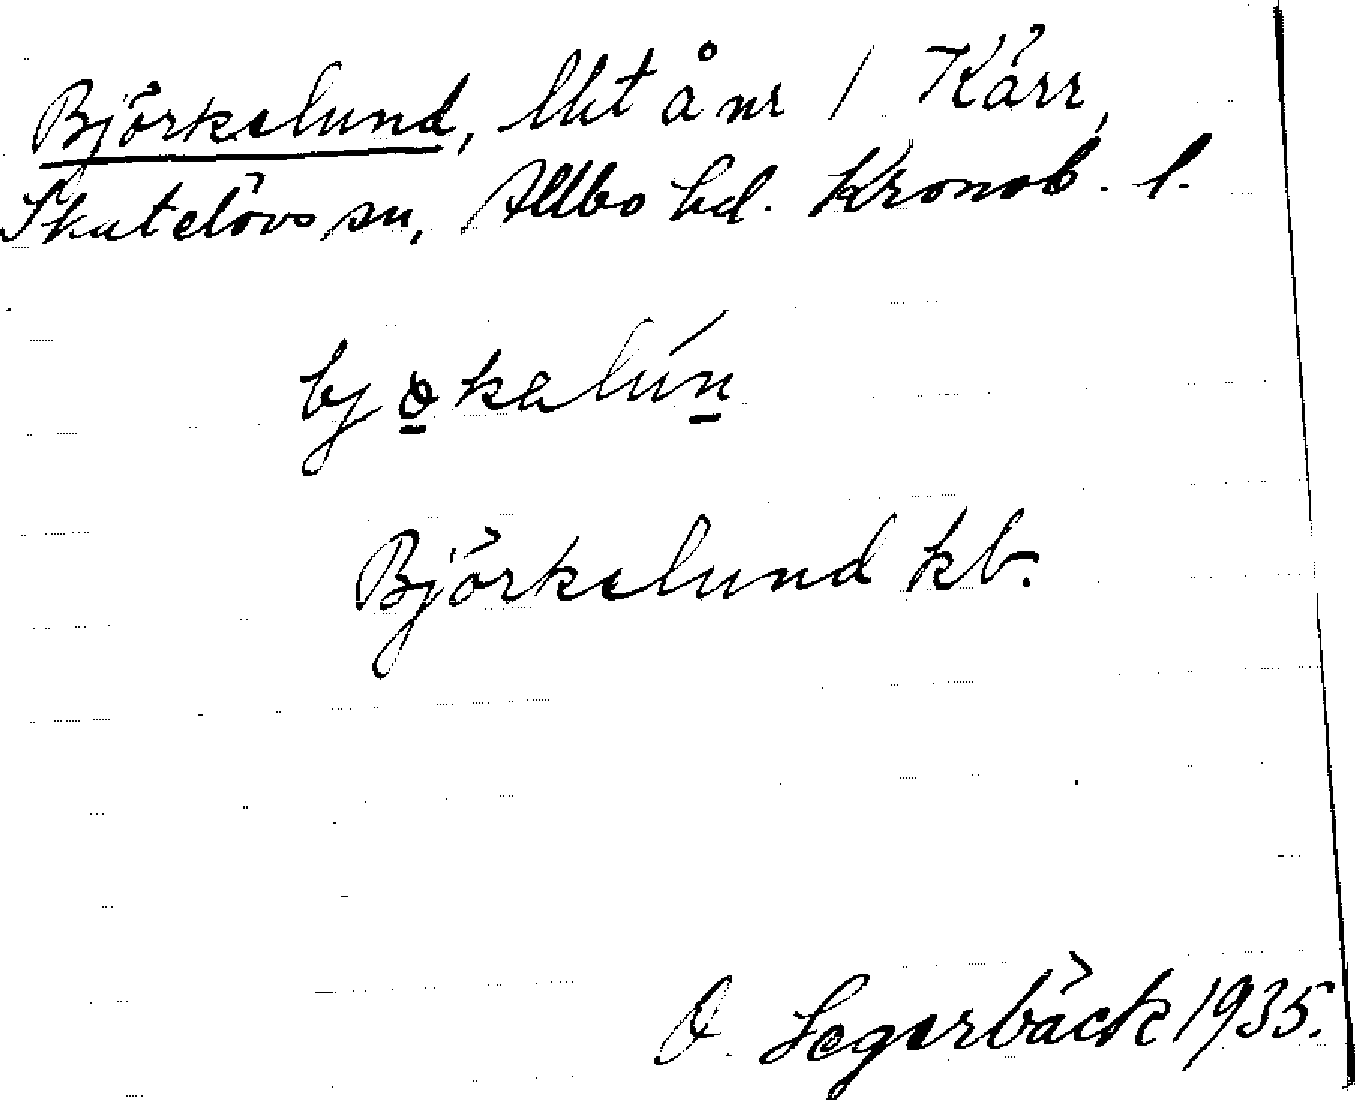 Björkelund, lht å nr 1 Kärr,
Skatelövs sn, Allbo hd. Kronob. l.
Björkelund kb.
O. Segerbäck 1935.